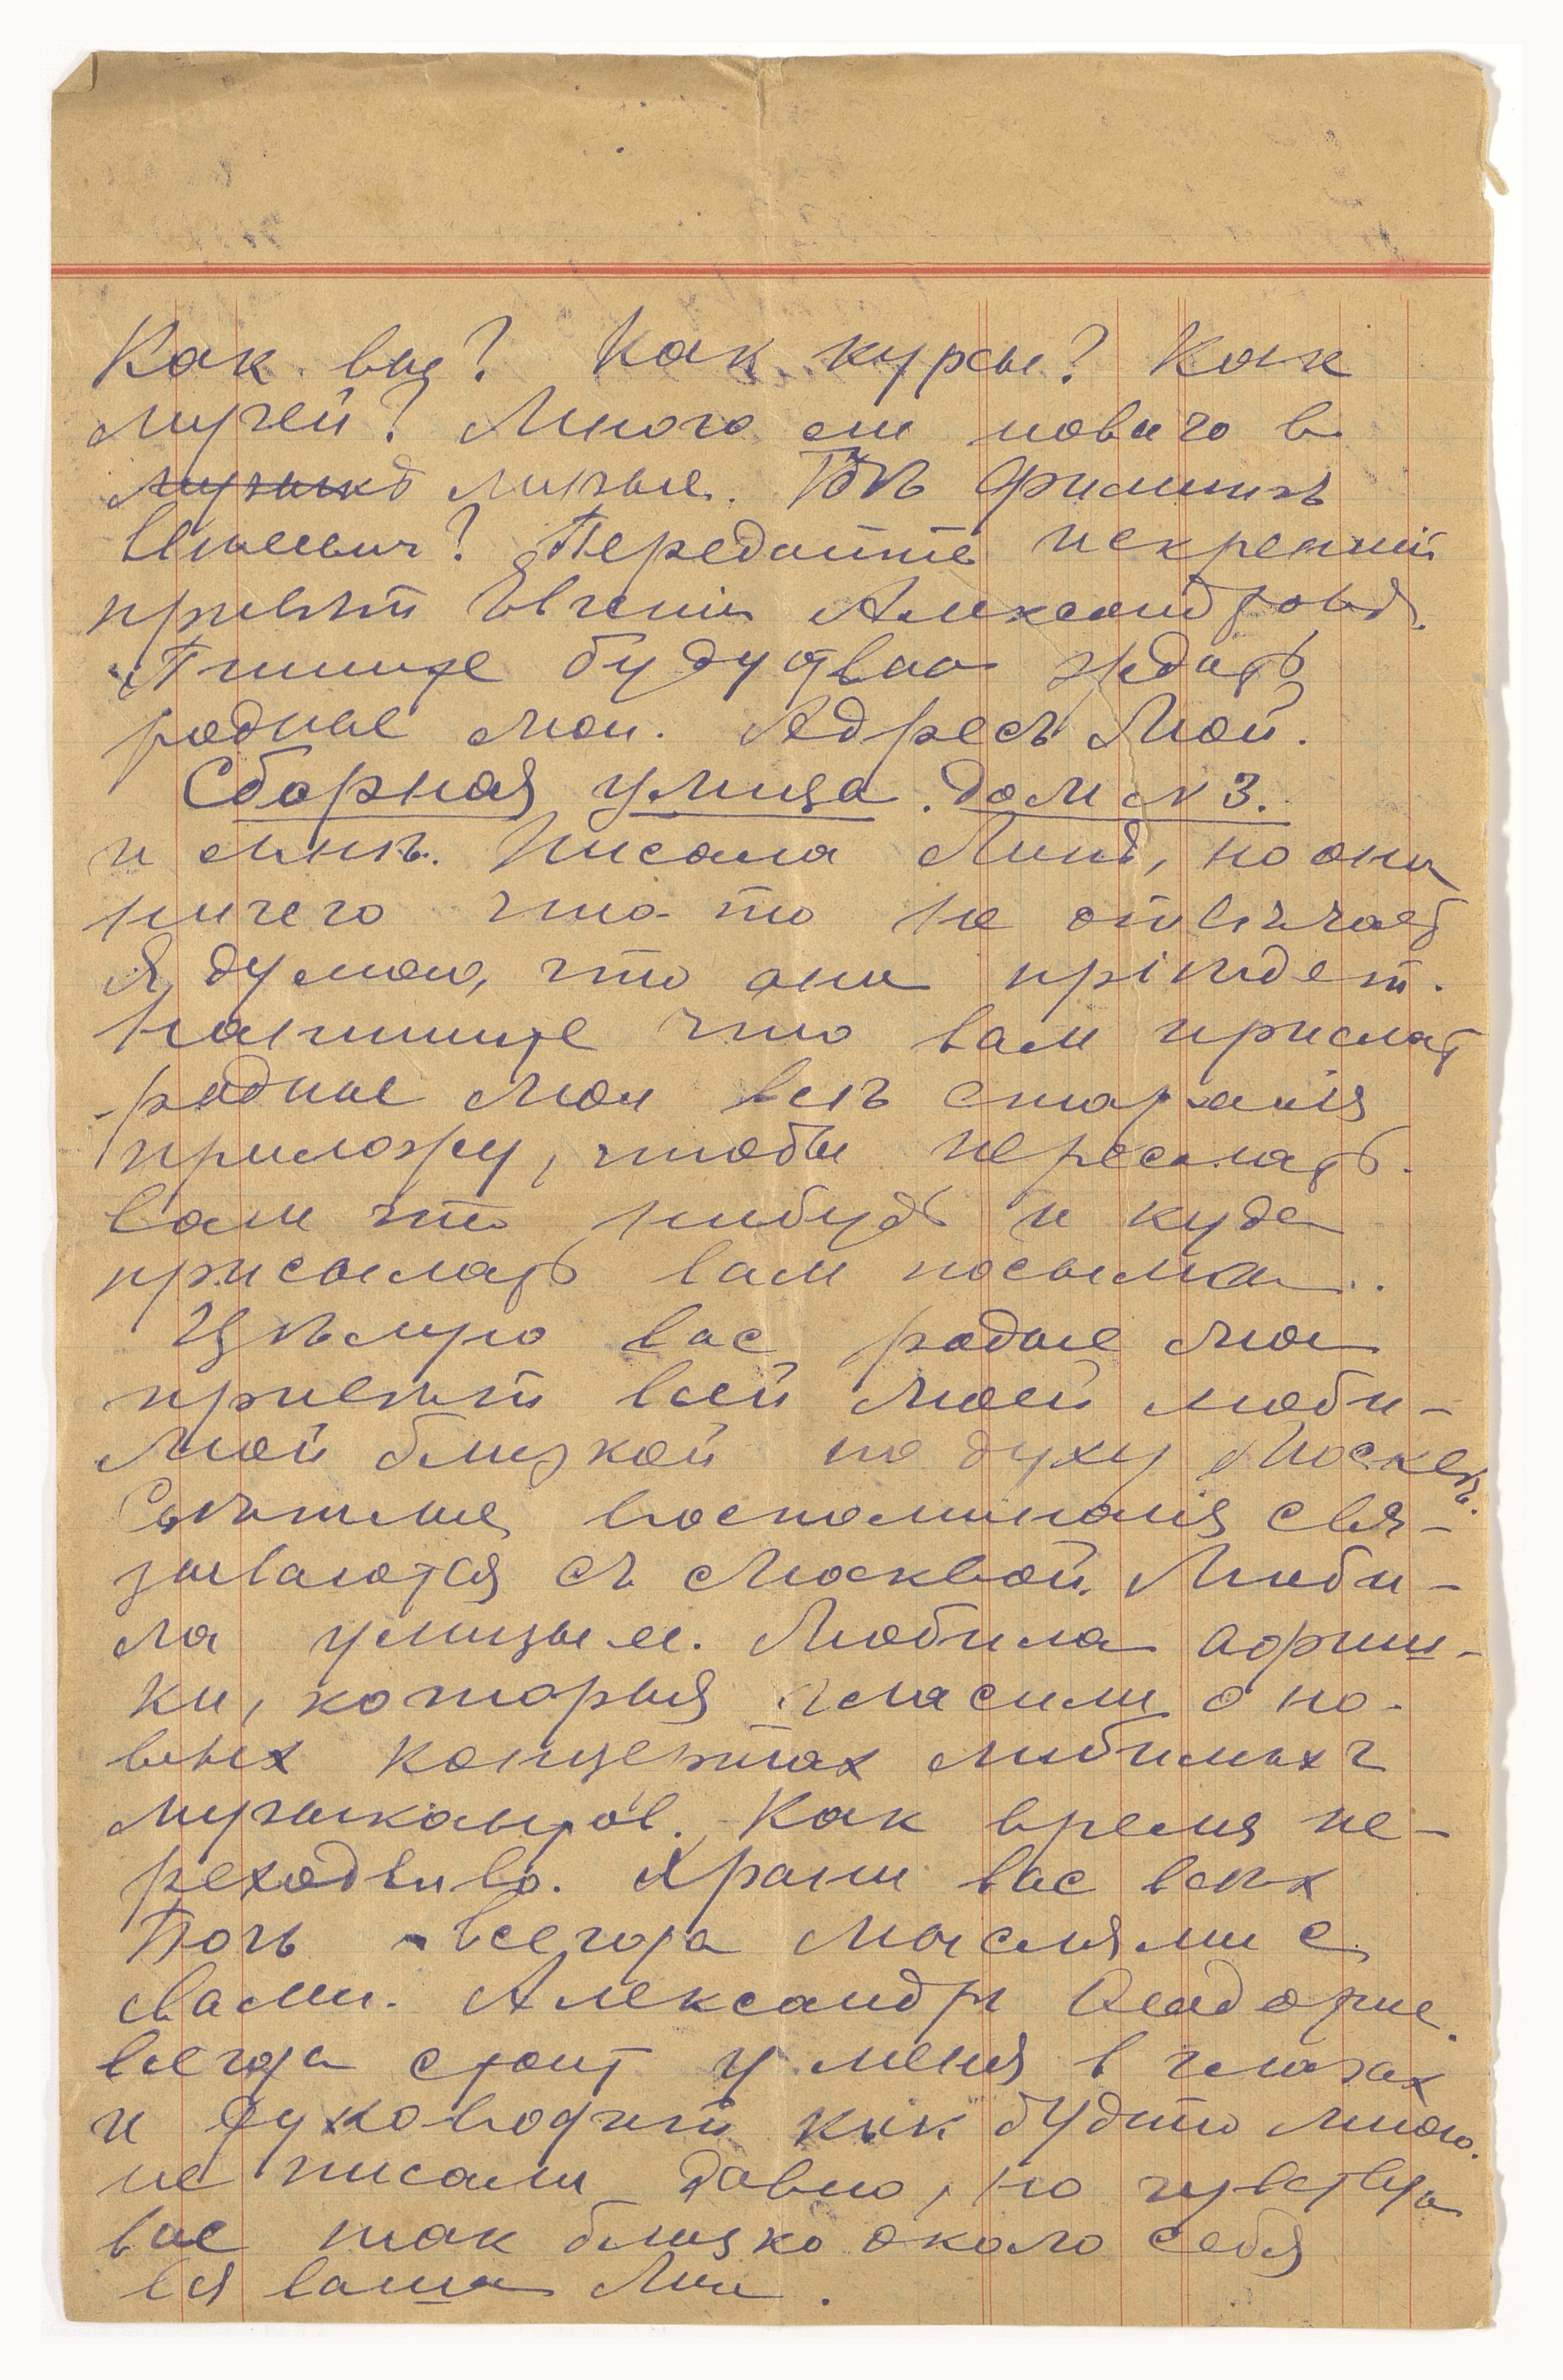 Как вы? Как курсы? Как
музей? Много ли новаго в
музыкѣ музыке. Гдѣ Филиппъ
Передайте искренний
привѣт Евгении Александровнѣ.
Пишите буду явно ждать
родные мои. Адресъ мой.
Сборная улица. дом № 3.
и мнѣ. Писала Линѣ, но она
ничего что-то не отвѣчает
Я думаю, что она пріѣдет.
Напишите что вам прислать
родные мои всѣ старанія
приложу, чтобы переслать
вам что нибудь и куда
присылать вам посылки..
Цѣлую вас родные мои
привѣт всей моей люби-
мой близкой по духу Москвѣ.
Свѣтлые воспоминанія свя-
зываются съ Москвой. Люби-
ла улицы ее. Любила афиш-
ки, которыя гласили о но-
вых концертах любимыхъ
музыкантов. Как время пе-
реходчиво. Храни вас всѣх
Богъ всегда мыслями с
вами. Александръ
всегда стоит у меня в глазах
и руководит как будто мною.
не писали давно, но чувствую
вас так близко около себя
вся ваша